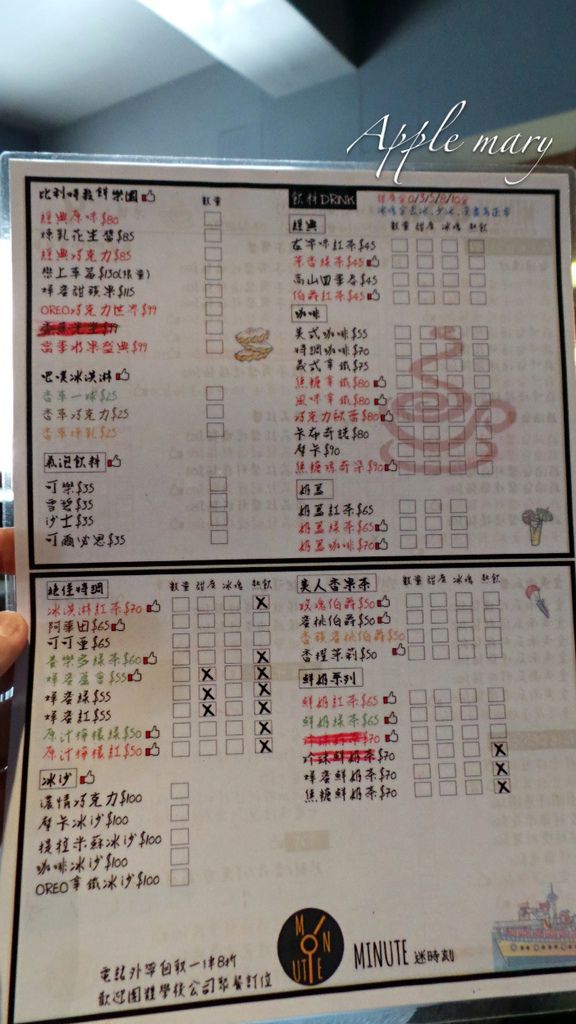 Apple mary
比利時鬆餅樂園
數量
經典原味$80
煉乳花生醬$85
經典巧克力$85
戀上草莓$130(限量)
蜂蜜甜蘋果$115
OREO巧克力世界$99
當季水果盛典$99
吧噗冰淇淋
香草一球$25
香草巧克力$25
香草煉乳$25
氣泡飲料
可樂$35
雪碧$35
沙士$35
可爾必思$35
飲料DRINK
甜度全0/3/5/8/10分
經典
數量 甜度 冰塊 熱飲
古早味紅茶$45
茉香綠茶$45
高山四季春$45
伯爵紅茶$45
咖啡
美式咖啡$55
特調咖啡$70
義式拿鐵$75
焦糖拿鐵$80
風味拿鐵$80
巧克力歐蕾$80
卡布奇諾$80
摩卡$90
焦糖瑪奇朵$90
奶蓋
奶蓋紅茶$65
奶蓋綠茶$65
奶蓋咖啡$70
絕佳特調
數量 甜度 冰塊 熱飲
冰淇淋紅茶$70
阿華田$65
可可亞$65
養樂多綠茶$60
蜂蜜蘆薈$55
蜂蜜綠$55
蜂蜜紅$55
原汁檸檬綠$50
原汁檸檬紅$50
冰沙
濃情巧克力$100
摩卡冰沙$100
提拉米蘇冰沙$100
咖啡冰沙$100
OREO拿鐵冰沙$100
美人香果茶
數量 甜度 冰塊 熱飲
玫瑰伯爵$50
蜜桃伯爵$50
香頌蜜桃伯爵$50
香橙茉莉$50
鮮奶系列
鮮奶紅茶$65
鮮奶綠茶$65
$70
珍珠鮮奶茶$70
蜂蜜鮮奶茶$70
焦糖鮮奶茶$70
MINUTE
MINUTE 迷時刻
電話外帶自取一律8折
歡迎團體學校公司聚餐訂位